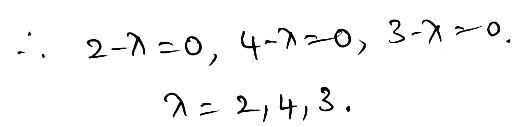 ∴ 2-λ=0, 4-λ=0, 3-λ=0.
λ = 2,4,3.